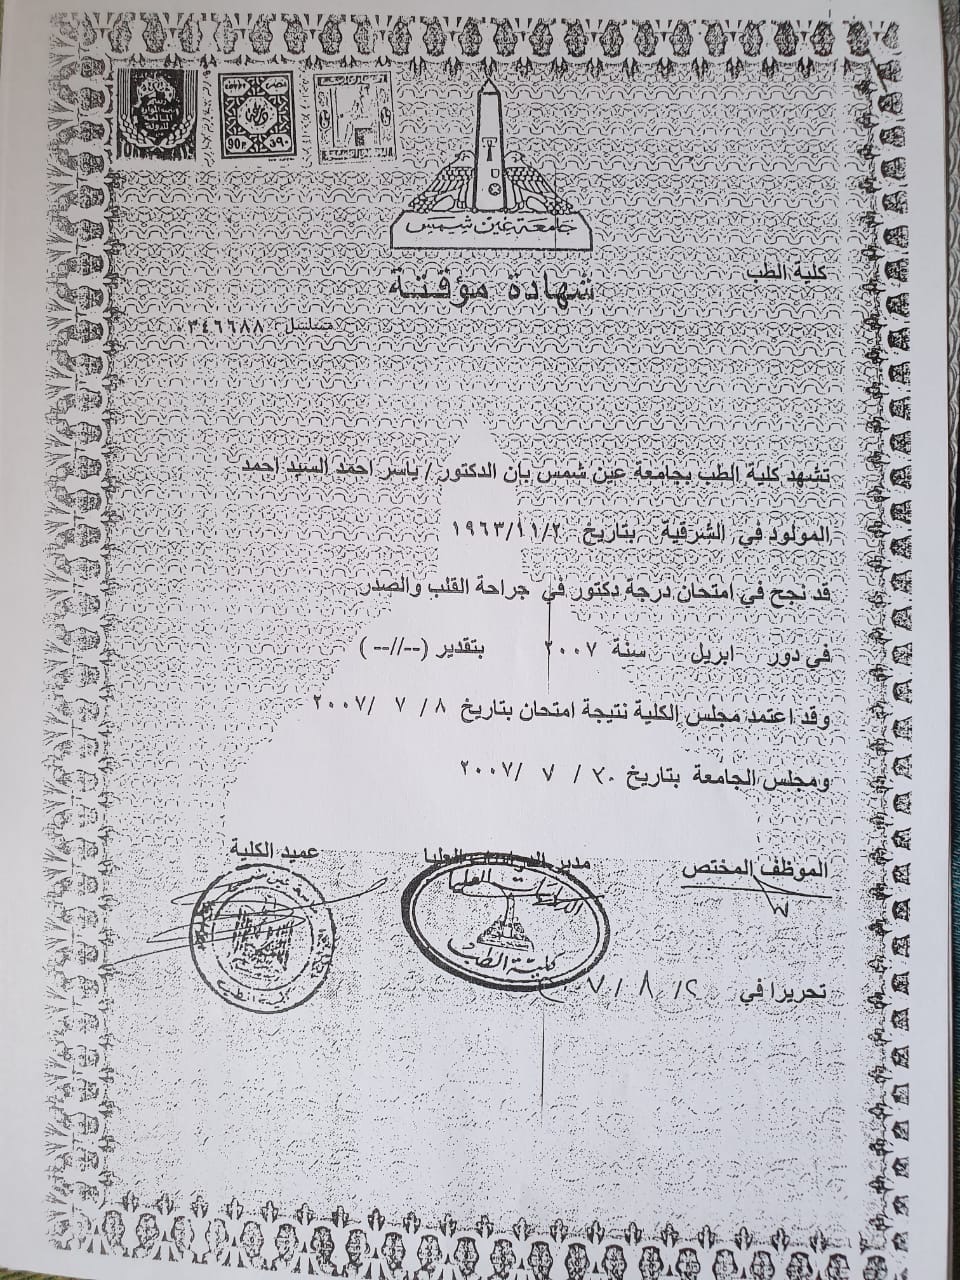 ٣٩٠
90P
جامعة عين شمس
كلية الطب
شهادة مؤقتة
مسلسل ٠٣٤٦٦٨٨
تشهد كلية الطب بجامعة عين شمس بان الدكتور / ياسر احمد السيد احمد
المولود في الشرقية بتاريخ ١٩٦٣/١١/٢
قد نجح في امتحان درجة دكتور في جراحة القلب والصدر
في دور ابريل سنة ٢٠٠٧ بتقدير (--//--)
وقد اعتمد مجلس الكلية نتيجة امتحان بتاريخ ٨ / ٧ /٢٠٠٧
ومجلس الجامعة بتاريخ ٣٠ / ٧ /٢٠٠٧
الموظف المختص مدير الدراسات العليا عميد الكلية
الدراسات العليا
كلية الطب
كلية الطب
تحريرا في ٢ / ٨ / ٧